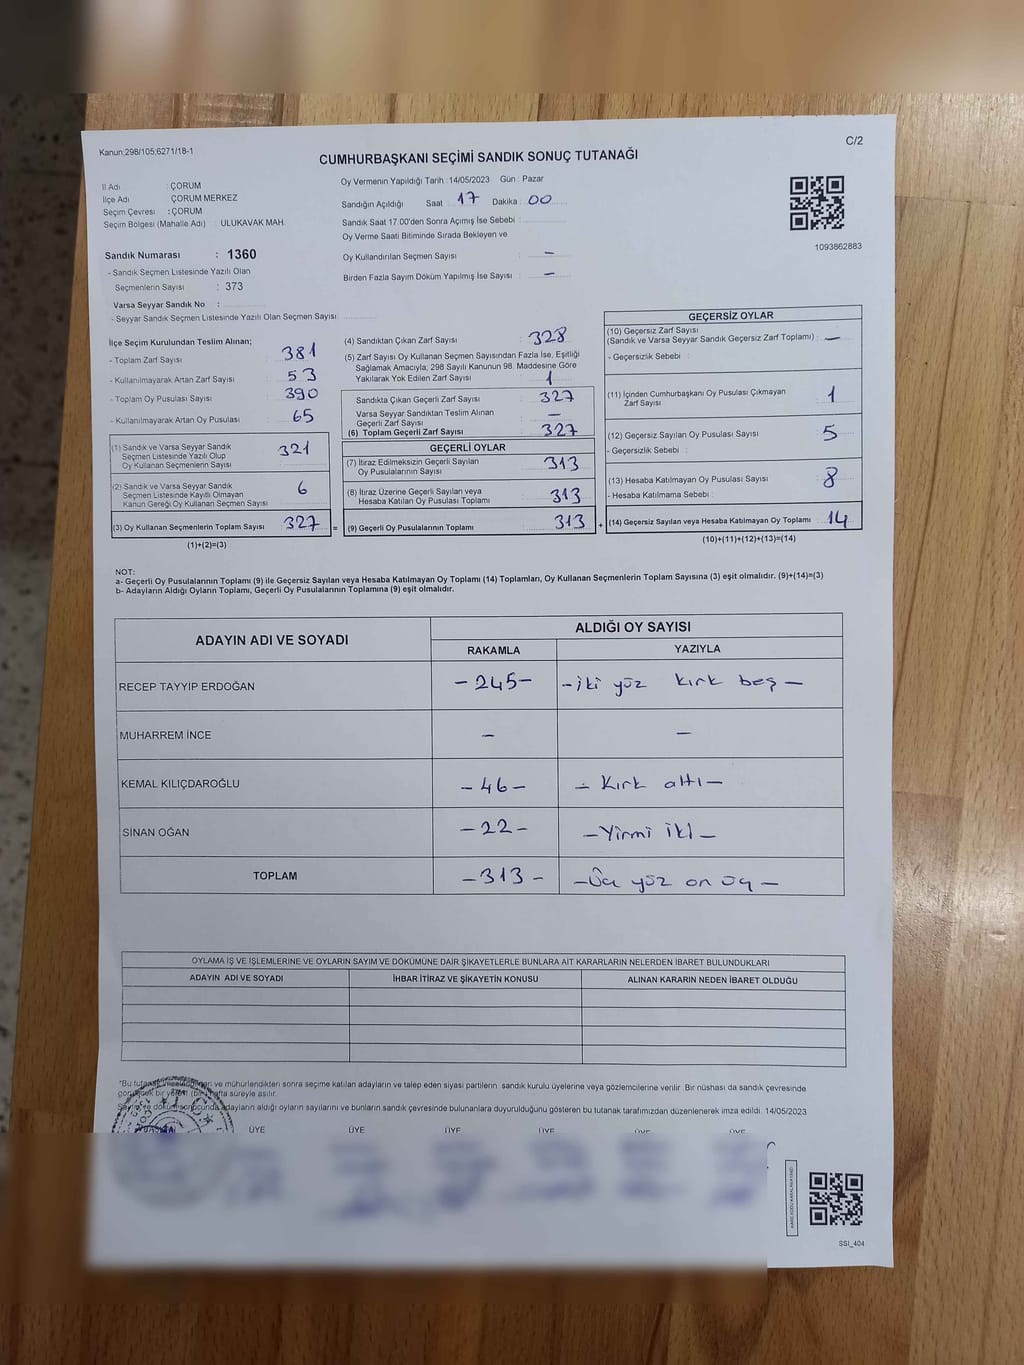 Kanun:298/105;6271/18-1
C/2
CUMHURBAŞKANI SEÇİMİ SANDIK SONUÇ TUTANAĞI
İl Adı : ÇORUM
İlçe Adı ÇORUM MERKEZ
Seçim Çevresi : ÇORUM
Seçim Bölgesi (Mahalle Adı) : ULUKAVAK MAH.
Oy Vermenin Yapıldığı Tarih :14/05/2023 Gün : Pazar
Sandığın Açıldığı Saat 17 Dakika : 00
Sandık Saat 17.00'den Sonra Açımış İse Sebebi :
Oy Verme Saati Bitiminde Sırada Bekleyen ve
Oy Kullandırılan Seçmen Sayısı : —
Birden Fazla Sayım Döküm Yapılmış İse Sayısı : —
1093862883
Sandık Numarası : 1360
- Sandık Seçmen Listesinde Yazılı Olan
Seçmenlerin Sayısı : 373
Varsa Seyyar Sandık No :
- Seyyar Sandık Seçmen Listesinde Yazılı Olan Seçmen Sayısı :
İlçe Seçim Kurulundan Teslim Alınan;
- Toplam Zarf Sayısı : 381
- Kullanılmayarak Artan Zarf Sayısı : 53
- Toplam Oy Pusulası Sayısı : 390
- Kullanılmayarak Artan Oy Pusulası : 65
(1) Sandık ve Varsa Seyyar Sandık
Seçmen Listesinde Yazılı Olup
Oy Kullanan Seçmenlerin Sayısı 321
(2) Sandık ve Varsa Seyyar Sandık
Seçmen Listesinde Kayıtlı Olmayan
Kanun Gereği Oy Kullanan Seçmen Sayısı 6
(3) Oy Kullanan Seçmenlerin Toplam Sayısı 327 =
(1)+(2)=(3)
(4) Sandıktan Çıkan Zarf Sayısı : 328
(5) Zarf Sayısı Oy Kullanan Seçmen Sayısından Fazla İse, Eşitliği
Sağlamak Amacıyla, 298 Sayılı Kanunun 98. Maddesine Göre
Yakılarak Yok Edilen Zarf Sayısı : 1
Sandıkta Çıkan Geçerli Zarf Sayısı : 327
Varsa Seyyar Sandıktan Teslim Alınan
Geçerli Zarf Sayısı : —
(6) Toplam Geçerli Zarf Sayısı : 327
GEÇERLİ OYLAR
(7) İtiraz Edilmeksizin Geçerli Sayılan
Oy Pusulalarının Sayısı 313
(8) İtiraz Üzerine Geçerli Sayılan veya
Hesaba Katılan Oy Pusulası Toplamı 313
(9) Geçerli Oy Pusulalarının Toplamı 313 +
GEÇERSİZ OYLAR
(10) Geçersiz Zarf Sayısı
(Sandık ve Varsa Seyyar Sandık Geçersiz Zarf Toplamı) : —
- Geçersizlik Sebebi :
(11) İçinden Cumhurbaşkanı Oy Pusulası Çıkmayan
Zarf Sayısı 1
(12) Geçersiz Sayılan Oy Pusulası Sayısı 5
- Geçersizlik Sebebi :
(13) Hesaba Katılmayan Oy Pusulası Sayısı 8
- Hesaba Katılmama Sebebi :
(14) Geçersiz Sayılan veya Hesaba Katılmayan Oy Toplamı : 14
(10)+(11)+(12)+(13)=(14)
NOT:
a- Geçerli Oy Pusulalarının Toplamı (9) ile Geçersiz Sayılan veya Hesaba Katılmayan Oy Toplamı (14) Toplamları, Oy Kullanan Seçmenlerin Toplam Sayısına (3) eşit olmalıdır. (9)+(14)=(3)
b- Adayların Aldığı Oyların Toplamı, Geçerli Oy Pusulalarının Toplamına (9) eşit olmalıdır.
ADAYIN ADI VE SOYADI
ALDIĞI OY SAYISI
RAKAMLA YAZIYLA
RECEP TAYYİP ERDOĞAN -245- -iki yüz kırk beş-
MUHARREM İNCE — —
KEMAL KILIÇDAROĞLU -46- - Kırk altı-
SİNAN OĞAN -22- -Yirmi iki-
TOPLAM -313- -Üç yüz on üç-
OYLAMA İŞ VE İŞLEMLERİNE VE OYLARIN SAYIM VE DÖKÜMÜNE DAİR ŞİKAYETLERLE BUNLARA AİT KARARLARIN NELERDEN İBARET BULUNDUKLARI
ADAYIN ADI VE SOYADI İHBAR İTİRAZ VE ŞİKAYETİN KONUSU ALINAN KARARIN NEDEN İBARET OLDUĞU
*Bu ve mühürlendikten sonra seçime katılan adayların ve talep eden siyasi partilerin sandık kurulu üyelerine veya gözlemcilerine verilir. Bir nüshası da sandık çevresinde
bir yere (bir) hafta süreyle asılır.
adayların aldığı oyların sayılarını ve bunların sandık çevresinde bulunanlara duyurulduğunu gösteren bu tutanak tarafımızdan düzenlenerek imza edildi. 14/05/2023
ÜYE ÜYE ÜYE ÜYE ÜYE ÜYE
SSI_404